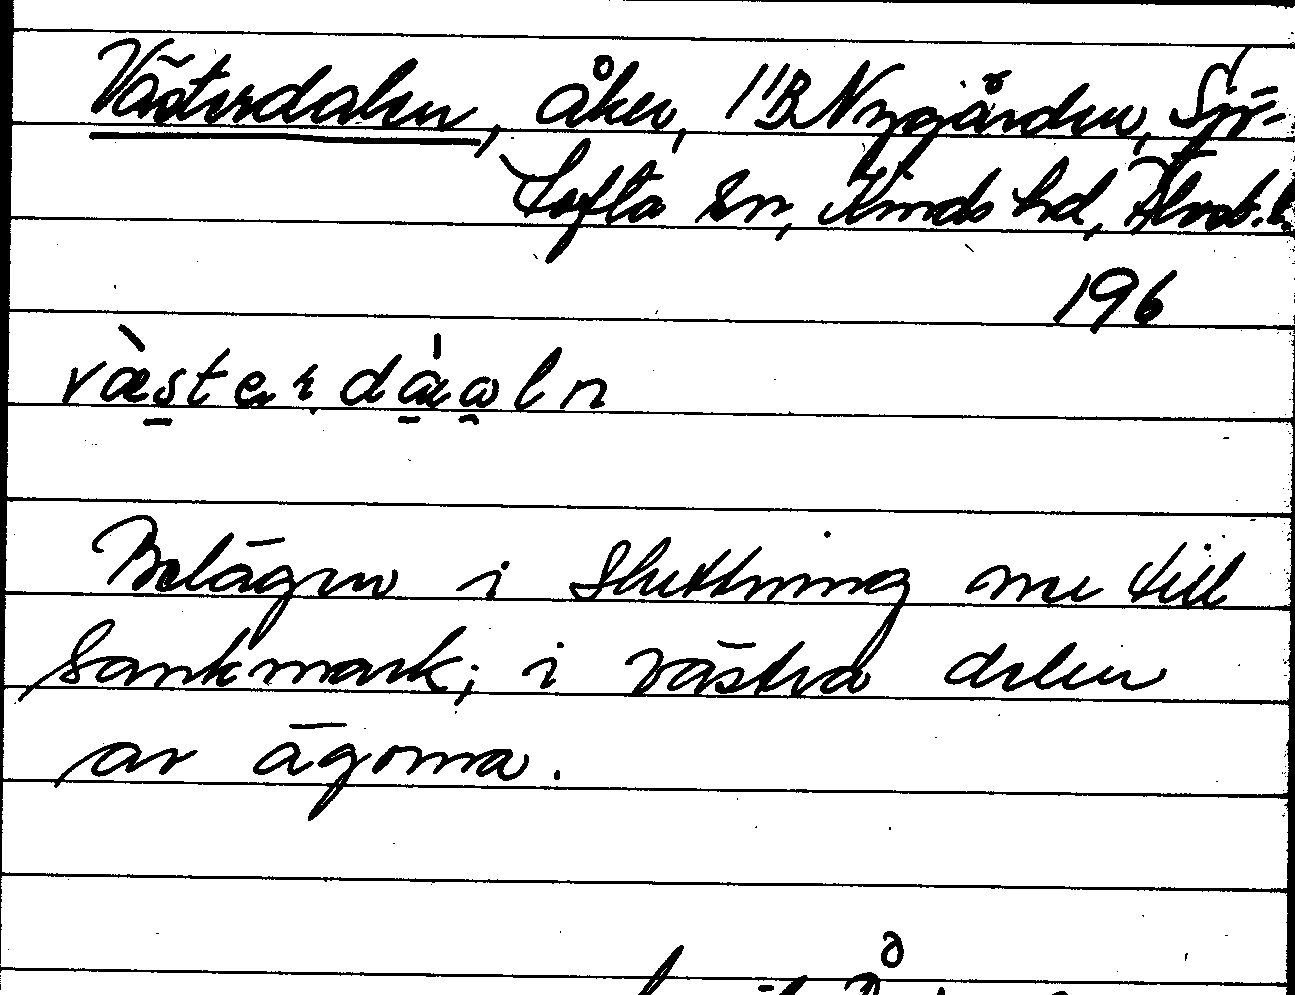 Västerdalen, åker, 1¹¹B Nygården, Sjö-
tofta sn, Kinds hd, Älvsb.l.
196
væsterdàaln
Belägen i sluttning ner till
sankmark; i västra delen
av ägorna.